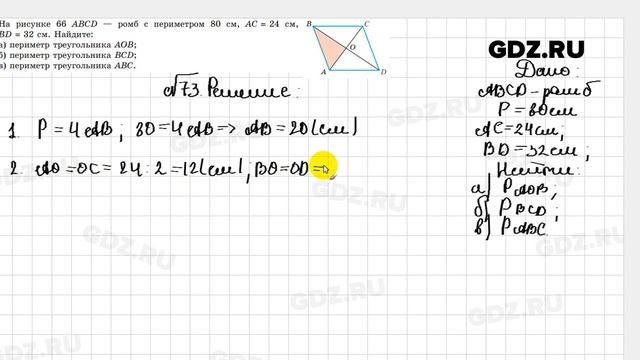 На рисунке 66 ABCD — ромб с периметром 80 см, AC = 24 см,
BD = 32 см. Найдите:
а) периметр треугольника AOB;
б) периметр треугольника BCD;
в) периметр треугольника ABC.
B
C
O
A
D
GDZ.RU
№73. Решение:
Дано:
ABCD-ромб
P=80см
AC=24см;
BD=32см;
Найти:
а) P AOB;
б) P BCD;
в) P ABC.
1. P=4AB; 80=4AB=> AB=20(см)
2. AO=OC=24:2=12(см); BO=OD=
GDZ.RU
GDZ.RU
GDZ.RU
GDZ.RU
GDZ.RU
GDZ.RU